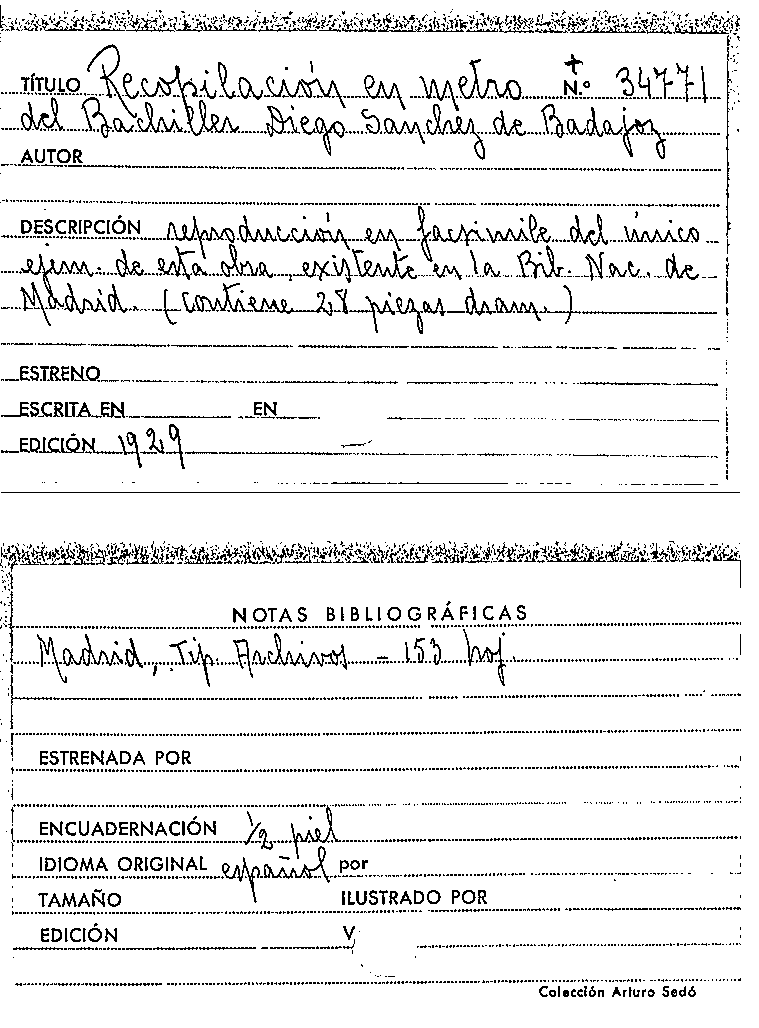 TÍTULO Recopilación en metro + N.º 34771
del Bachiller Diego Sanchez de Badajoz
AUTOR
DESCRIPCIÓN reproducción en facsimile del único
ejem. de esta obra, existente en la Bib. Nac. de
Madrid. (Contiene 28 piezas dram.)
ESTRENO
ESCRITA EN EN
EDICIÓN 1929
NOTAS BIBLIOGRÁFICAS
Madrid, Tip. Archivos - 153 hoj.
ESTRENADA POR
ENCUADERNACIÓN 1/2 piel
IDIOMA ORIGINAL español por
TAMAÑO ILUSTRADO POR
EDICIÓN V
Colección Arturo Sedó